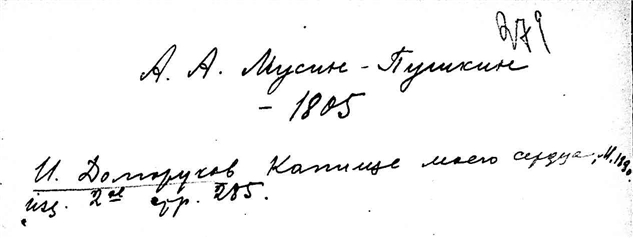 279
А. А. Мусин-Пушкин
- 1805
И. Долгоруков Капище моего сердца, М. 1890.
изд. 2ое стр. 205.